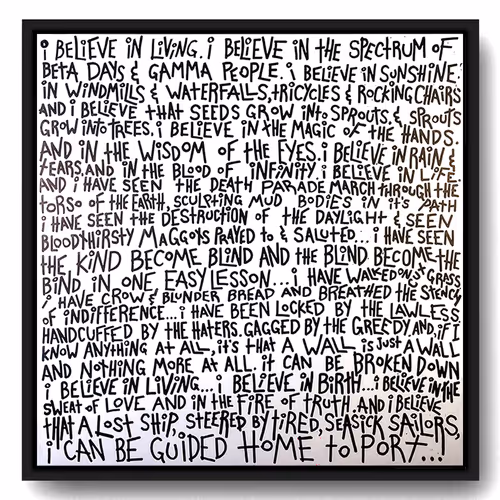 i BELiEVE iN LiViNG. i BELiEVE iN THE SPECTRUM OF
BETA DAYS & GAMMA PEOPLE. i BELiEVE iN SUNSHiNE.
iN WiNDMiLLS & WATERFALLS, TRiCYCLES & ROCKiNG CHAiRS
AND i BELiEVE THAT SEEDS GROW iNTO SPROUTS. & SPROUTS
GROW iNTO TREES. i BELiEVE iN THE MAGiC OF THE HANDS.
AND iN THE WiSDOM OF THE EYES. i BELiEVE iN RAiN &
TEARS. AND iN THE BLOOD OF iNFiNiTY. i BELiEVE iN LiFE.
AND i HAVE SEEN THE DEATH PARADE MARCH THROUGH THE
TORSO OF THE EARTH, SCULPTiNG MUD BODiES iN iT'S PATH
i HAVE SEEN THE DESTRUCTiON OF THE DAYLiGHT & SEEN
BLOODTHiRSTY MAGGOTS PRAYED TO & SALUTED... i HAVE SEEN
THE KiND BECOME BLiND AND THE BLiND BECOME THE
BiND. iN ONE EASY LESSON... i HAVE WALKED ON GRASS
i HAVE CROW & BLUNDER BREAD AND BREATHED THE STENCH
OF iNDiFFERENCE... i HAVE BEEN LOCKED BY THE LAWLESS.
HANDCUFFED BY THE HATERS. GAGGED BY THE GREEDY. AND, iF i
KNOW ANYTHiNG AT ALL, iT'S THAT A WALL iS JUST A WALL
AND NOTHiNG MORE AT ALL. iT CAN BE BROKEN DOWN
i BELiEVE iN LiViNG... i BELiEVE iN BiRTH... i BELiEVE iN THE
SWEAT OF LOVE AND iN THE FiRE OF TRUTH. AND i BELiEVE
THAT A LOST SHiP, STEERED BY TiRED, SEASiCK SAiLORS,
i CAN BE GUiDED HOME TO PORT...!